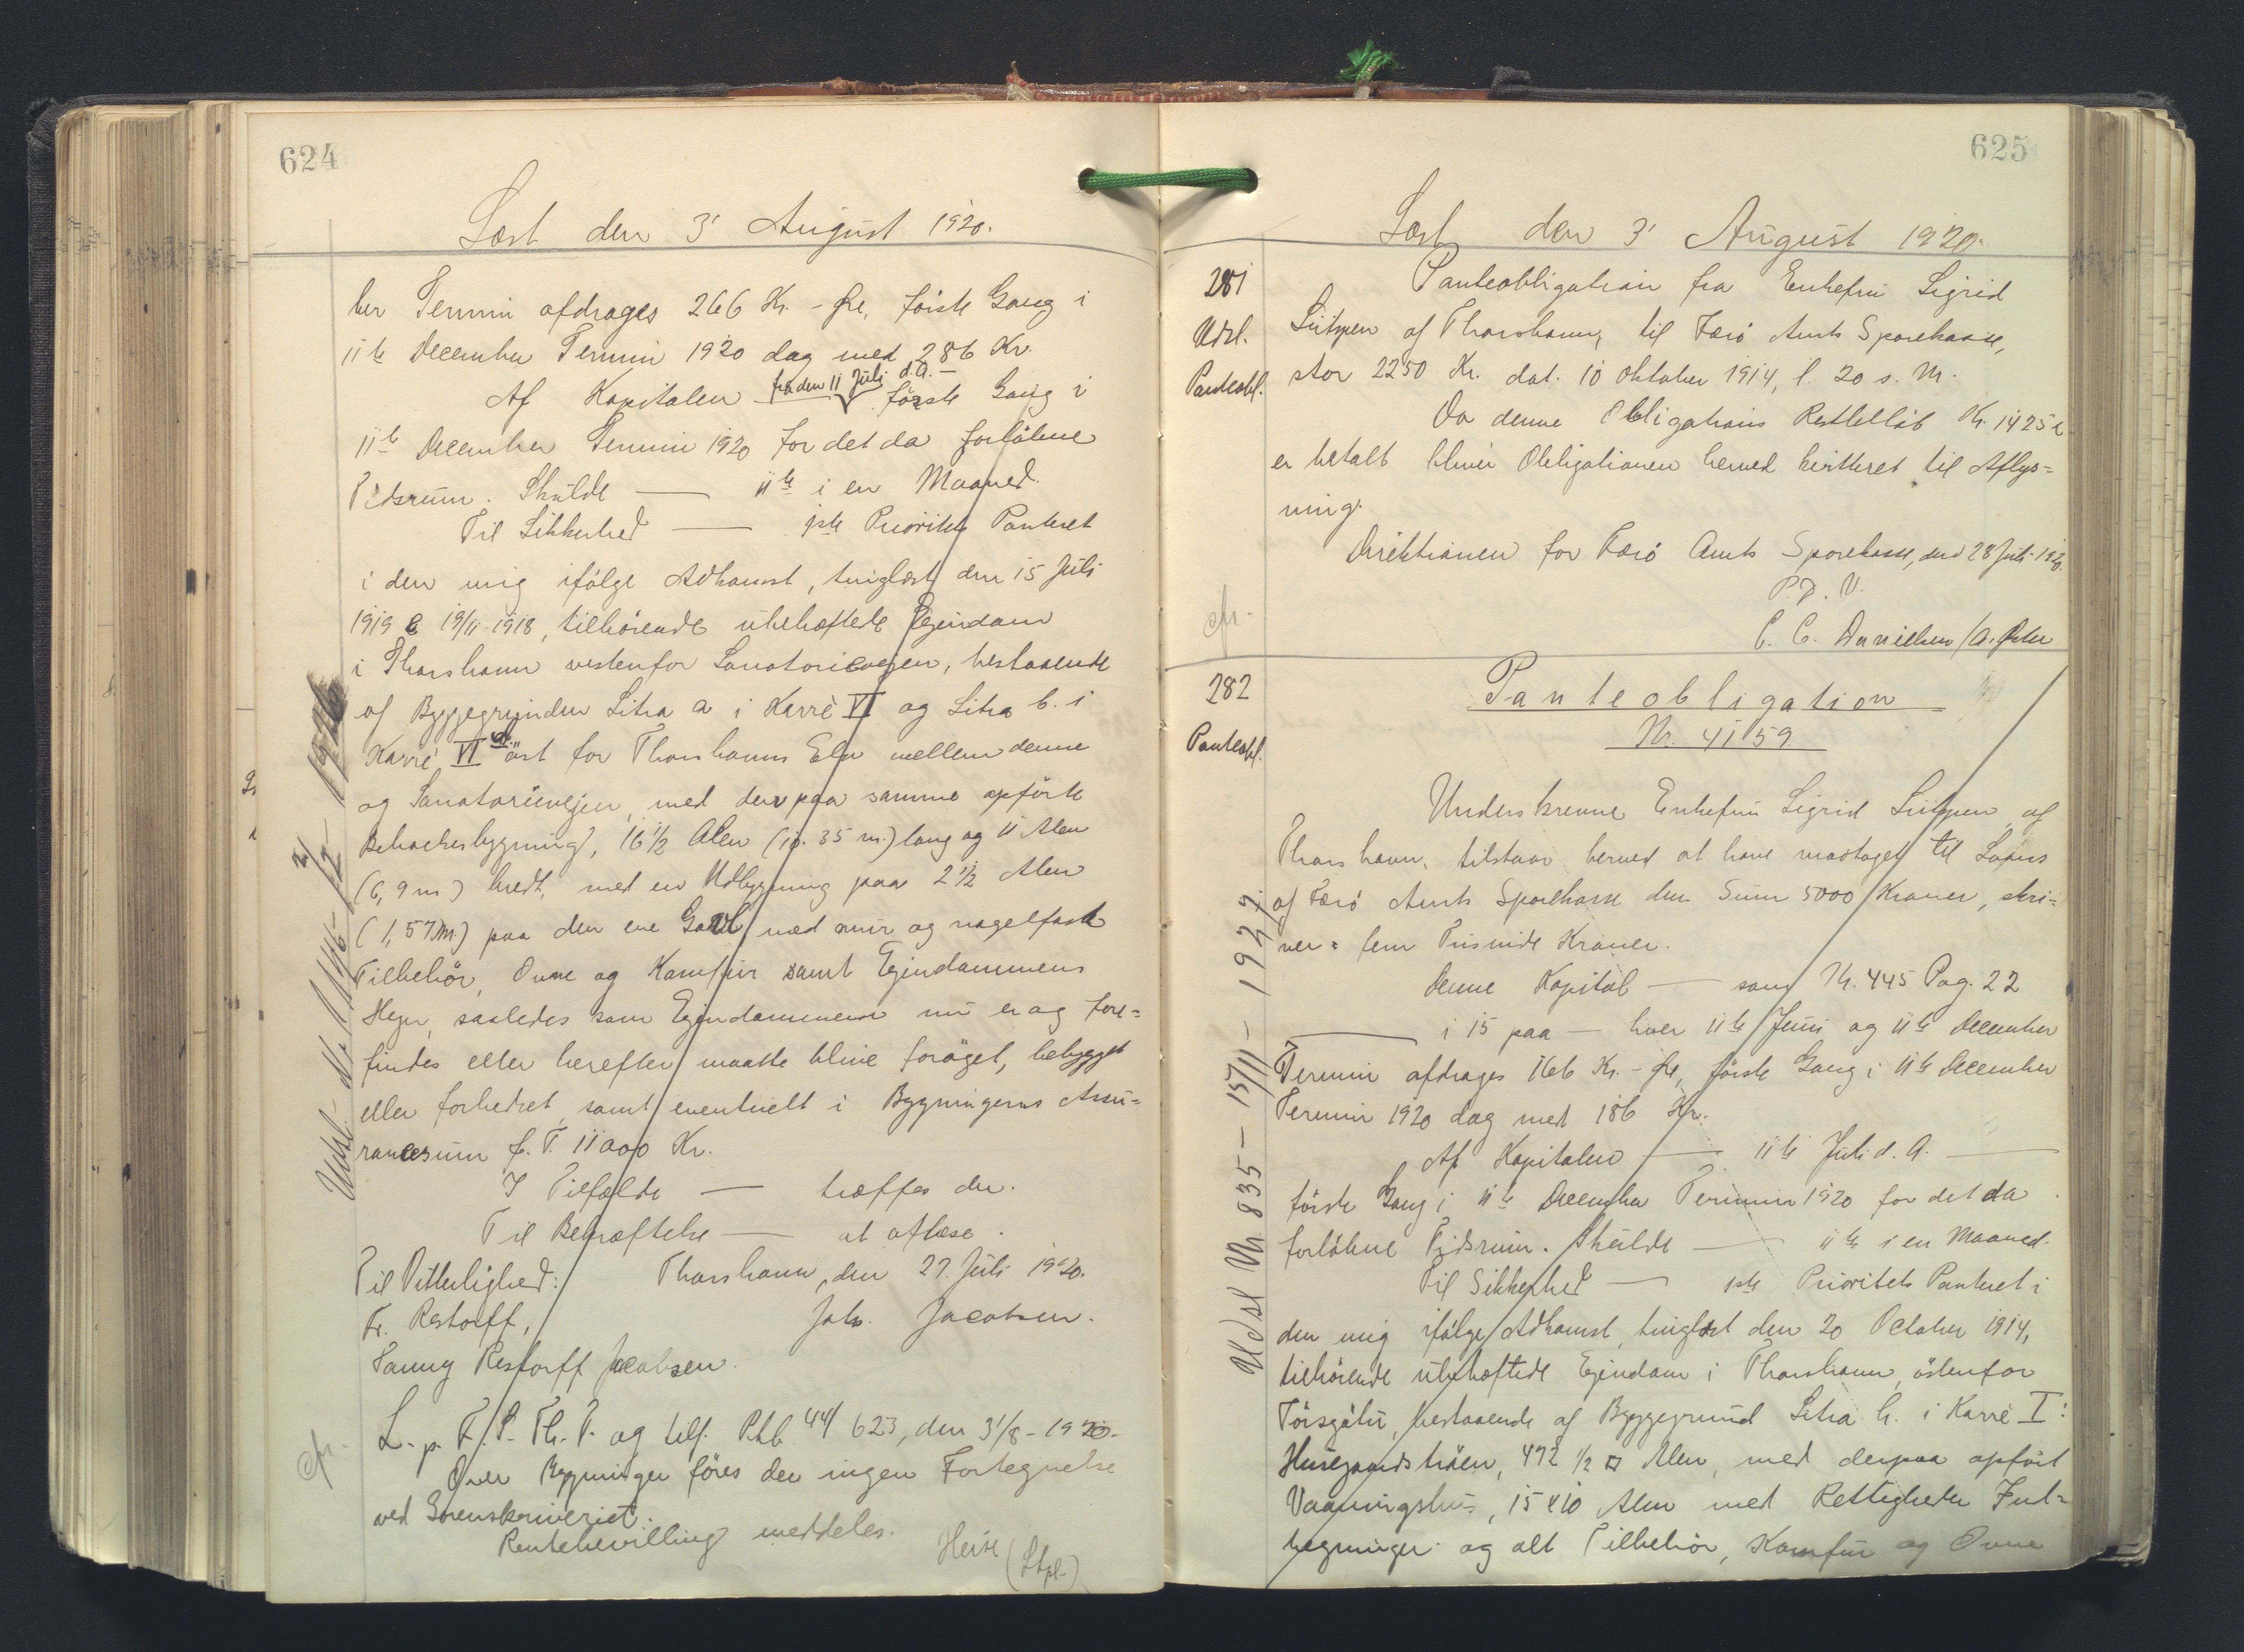 624
Læst den 3' August 1920.
ber Termin afdrages 266 Kr. - Øre, første Gang i
11te December Termin 1920 dog med 286 Kr.
Af Kapitalen fra den 11 Juli d.A. — første Gang i
11te December Termin 1920 for det da forløbne
Tidsrum. Skulde — 11te i en Maaned.
Til Sikkerhed — 1ste Prioritets Panteret
i den mig ifølge Adkomst, tinglæst den 15 Juli
1919 & 19/11-1918, tilhørende ubehæftede Ejendom
i Thorshavn vestenfor Sanatorievejen, bestaaende
af Byggegrunden Litra a i Karré VI og Litra b. i
Karré VI øst for Thorshavns Elv mellem denne
og Sanatorievejen, med den paa samme opførte
Beboelsesbygning, 16 1/2 Alen (10.35 m.) lang og 11 Alen
(6,9 m) bredt, med en Udbygning paa 2 1/2 Alen
(1,57 m.) paa den ene Gavl, med mur og nagelfast
Tilbehør, Ovne og Komfur samt Ejendommens
Hegn, saaledes som Ejendommene nu er og fore=
findes eller herefter maatte blive forøget, bebygget
eller forbedret, samt eventuelt i Bygningens Assu=
rancesum p. T. 11000 Kr.
I Tilfælde — træffes der.
Til Bekræftelse — at aflæse.
Til Vitterlighed: Thorshavn, den 27. Juli 1920.
Fr. Restorff, Johs. Jacobsen.
Fanny Restorff Jacobsen.
cfr.
L. p. F. S. Th. T. og tilf. Ptb 44/623, den 3/8 - 1920.
Over Bygninger føres der ingen Fortegnelse
ved Sorenskriveriet.
Rentebevilling meddeles.
Heise (Stpl.)
625
Læst den 3' August 1920.
281
Udsl.
Panteobl.
Panteobligation fra Enkefru Sigrid
Lützen af Thorshavn, til Færø Amts Sparekasse,
stor 2250 Kr. dat. 10 Oktober 1914, l. 20 s. M.
Da denne Obligations Restbeløb Kr. 1425
er betalt bliver Obligationen herved kvitteret til Aflys=
ning.
Direktionen for Færø Amts Sparekasse, den 28 Juli 1920.
P. D. V.
C. C. Danielsen /
cfr.
282
Panteobl.
Panteobligation
Nr. 4159
Underskrevne Enkefru Sigrid Lützen af
Thorshavn, tilstaar herved at have modtaget til Laans
af Færø Amts Sparekasse den Sum 5000 Kroner, skri=
ver = fem Tusinde Kroner.
Denne Kapital — som Nr. 445 Pag. 22
— i 15 paa — hver 11te Juni og 11te December
Termin afdrages 166 Kr. - Øre, første Gang i 11te December
Termin 1920 dog med 186 Kr.
Af Kapitalen — 11te Juli d. A. —
første Gang i 11te December Termin 1920 for det da
forløbne Tidsrum. Skulde — 11te i en Maaned.
Til Sikkerhed — 1ste Prioritets Panteret i
den mig ifølge Adkomst, tinglæst den 20 October 1914,
tilhørende ubehæftede Ejendom i Thorshavn, østenfor
Tórsgøtu, bestaaende af Byggegrund Litra h. i Karré I:
472 1/2 □ Alen, med derpaa opført
Vaaningshus, 15 x 10 Alen med Rettigheder Ind=
hegninger og alt Tilbehør, Komfur og Ovne
Udsl Nr 835 - 15/11 - 1922